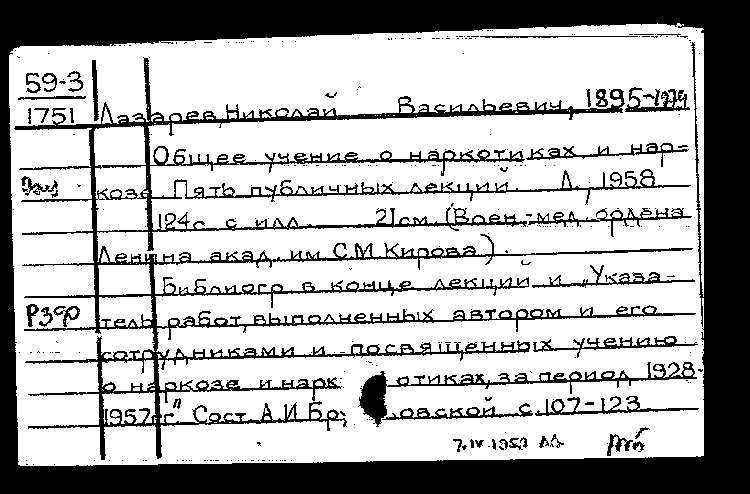 59-3
1751 Лазарев, Николай Васильевич, 1895-1974
Общее учение о наркотиках и нар-
козе. Пять публичных лекций. Л., 1958
124с. с илл. 21см. (Воен.-мед. ордена
Ленина акад. им. С.М. Кирова).
Библиогр. в конце лекций и „Указа-
Р3ф тель работ, выполненных автором и его
сотрудниками и посвященных учению
о наркозе и наркотиках, за период 1928-
1957гг." Сост. А.И. Бр овской с. 107-123
7.IV.1959